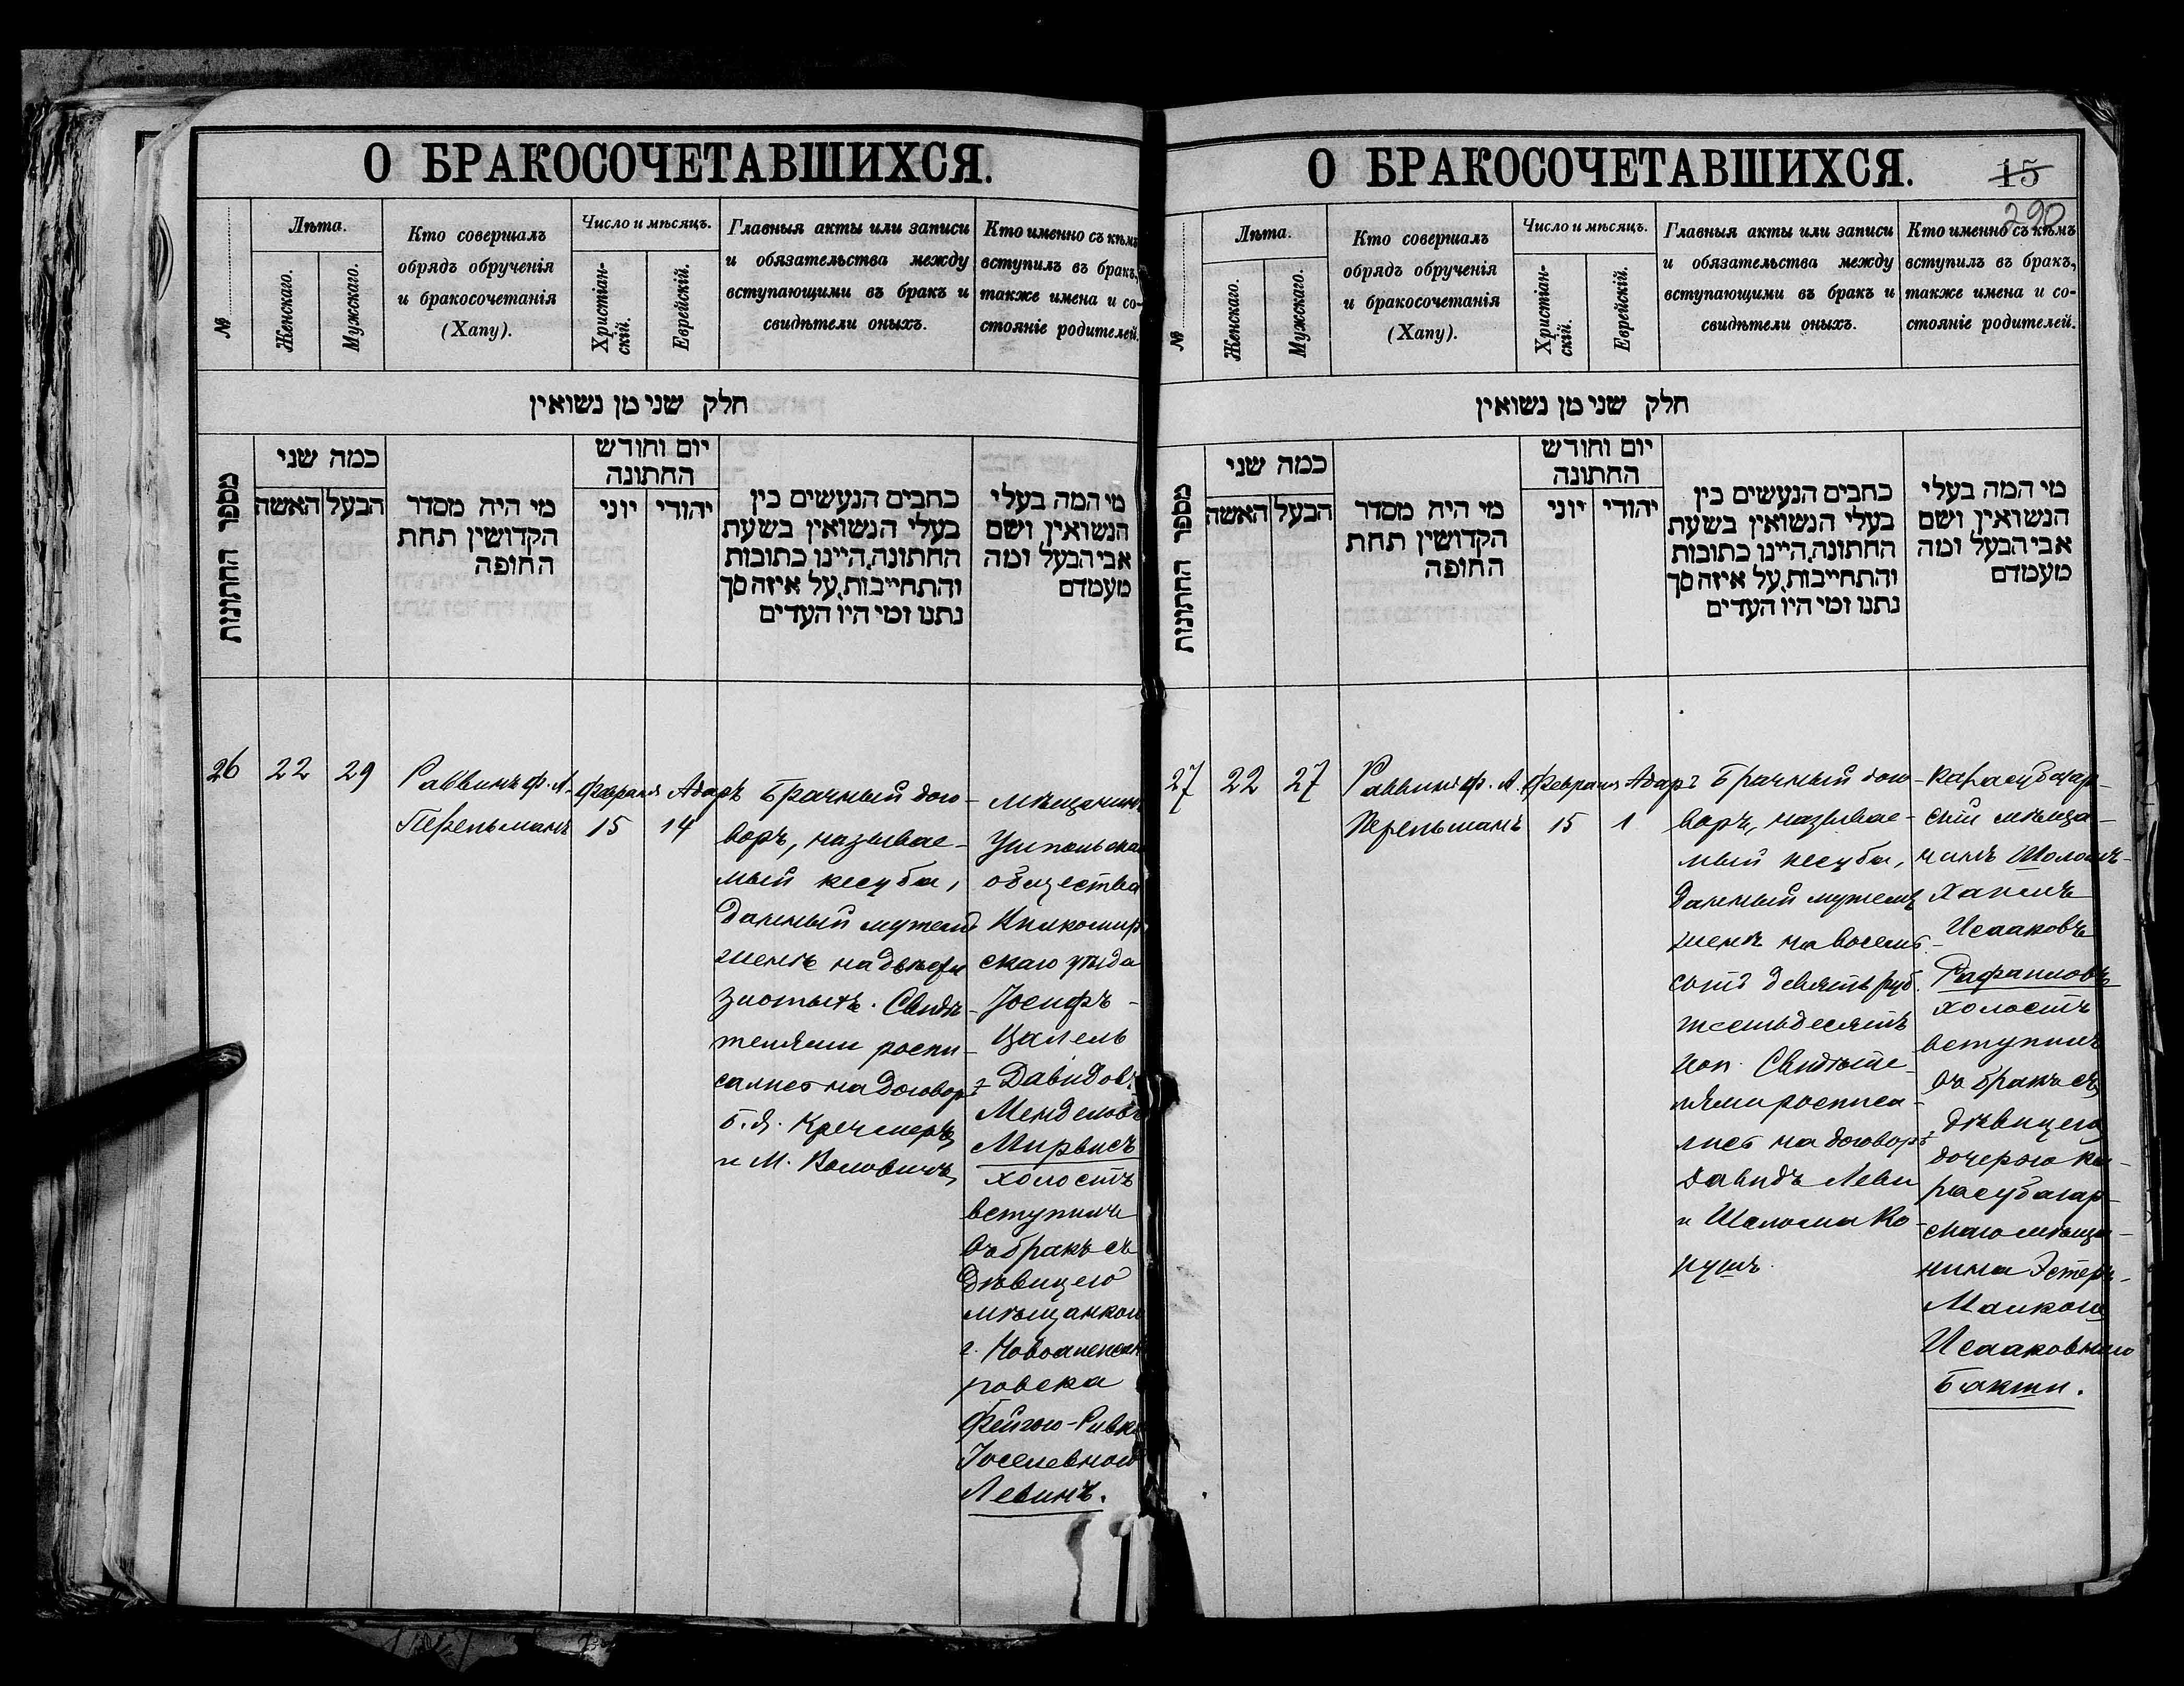 О БРАКОСОЧЕТАВШИХСЯ.
№
Лѣта.
Женскаго.
Мужскаго.
Кто совершалъ
обрядъ обрученія
и бракосочетанія
(Хапу).
Число и мѣсяцъ.
Христіан-
скій.
Еврейскій.
Главныя акты или записи
и обязательства между
вступающими въ бракъ и
свидѣтели оныхъ.
Кто именно съ кѣмъ
вступилъ въ бракъ,
также имена и со-
стояніе родителей.
חלק שני מן נשואין
מספר החתונות
כמה שני
האשה
הבעל
מי היה מסדר
הקדושין תחת
החופה
יום וחודש
החתונה
יוני
יהודי
כתבים הנעשים בין
בעלי הנשואין בשעת
החתונה.היינו כתובות
והתחייבות.על איזה סך
נתנו ומי היו העדים
מי המה בעלי
הנשואין ושם
אבי הבעל ומה
מעמדם
26
22
29
Раввинъ Ф. Л.
Перельманъ
Февраля
15
Адаръ
14
Брачный дого-
воръ, называе-
мый кесуба,
данный мужемъ
женѣ на двѣсти
злотыхъ. Свидѣ-
телями роспи-
салисъ на договорѣ
Б. Я. Кречмеръ
и М. Воловичъ
Мѣщанинъ
Ушпольскаго
общества
Вилкомир
скаго уѣзда
Іосифъ-
Цалель
Давидовъ
Менделовъ
Мирвисъ
холостъ
вступилъ
въ бракъ съ
дѣвицею
мѣщанкою
г. Новоалексан
ровска
Фейгою-Ривкою
Іоселевною
Левинъ.
О БРАКОСОЧЕТАВШИХСЯ.
15
290
№
Лѣта.
Женскаго.
Мужскаго.
Кто совершалъ
обрядъ обрученія
и бракосочетанія
(Хапу).
Число и мѣсяцъ.
Христіан-
скій.
Еврейскій.
Главныя акты или записи
и обязательства между
вступающими въ бракъ и
свидѣтели оныхъ.
Кто именно съ кѣмъ
вступилъ въ бракъ,
также имена и со-
стояніе родителей.
חלק שני מן נשואין
מספר החתונות
כמה שני
האשה
הבעל
מי היה מסדר
הקדושין תחת
החופה
יום וחודש
החתונה
יוני
יהודי
כתבים הנעשים בין
בעלי הנשואין בשעת
החתונה.היינו כתובות
והתחייבות.על איזה סך
נתנו ומי היו העדים
מי המה בעלי
הנשואין ושם
אבי הבעל ומה
מעמדם
27
22
27
Раввинъ Ф. Л.
Перельманъ
Февраля
15
Адаръ
1
Брачный дого-
воръ, называе-
мый кесуба,
данный мужемъ
женѣ на восемъ-
сотъ девять руб.
шестьдесятъ
коп. Свидѣте-
лями росписа-
лисъ на договорѣ
Давидъ Леви
и Шалома Ко-
кушъ.
Карасубазар-
скій мѣща-
нинъ Шоломъ-
Хаимъ
Исааковъ
Рафаиловъ
холостъ
вступилъ
въ бракъ съ
дѣвицею
дочерью ка-
расубазар-
скаго мѣща-
нина Эстеръ-
Малкою
Исааковною
Бакши.